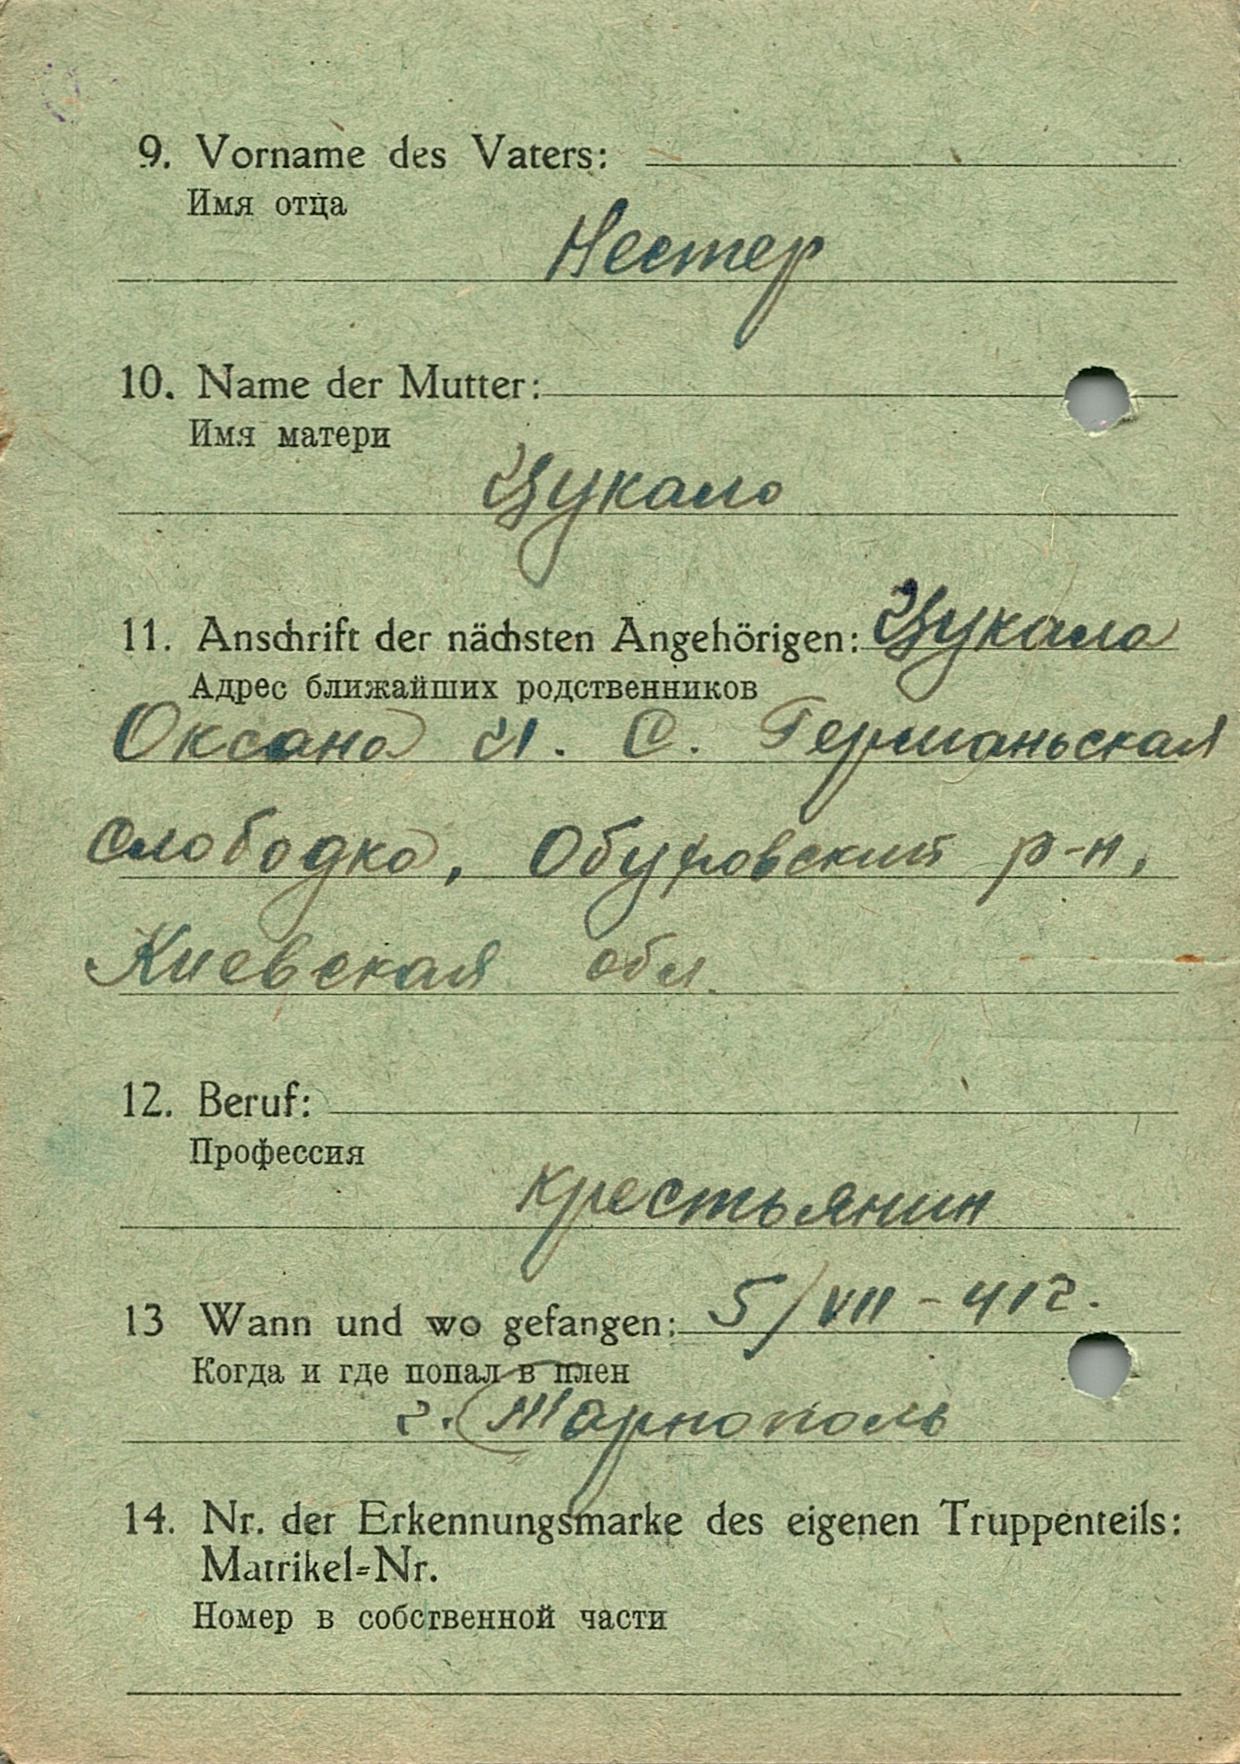 9. Vorname des Vaters:
Имя отца
Нестер
10. Name der Mutter:
Имя матери
Цукало
11. Anschrift der nächsten Angehörigen: Цукало
Адрес ближайших родственников
Оксана И. С. Германьская
слободка, Обуховский р-н,
Киевская обл.
12. Beruf:
Профессия
крестьянин
13 Wann und wo gefangen: 5/VII - 41г.
Когда и где попал в плен
г. Тарнополь
14. Nr. der Erkennungsmarke des eigenen Truppenteils:
Matrikel-Nr.
Номер в собственной части